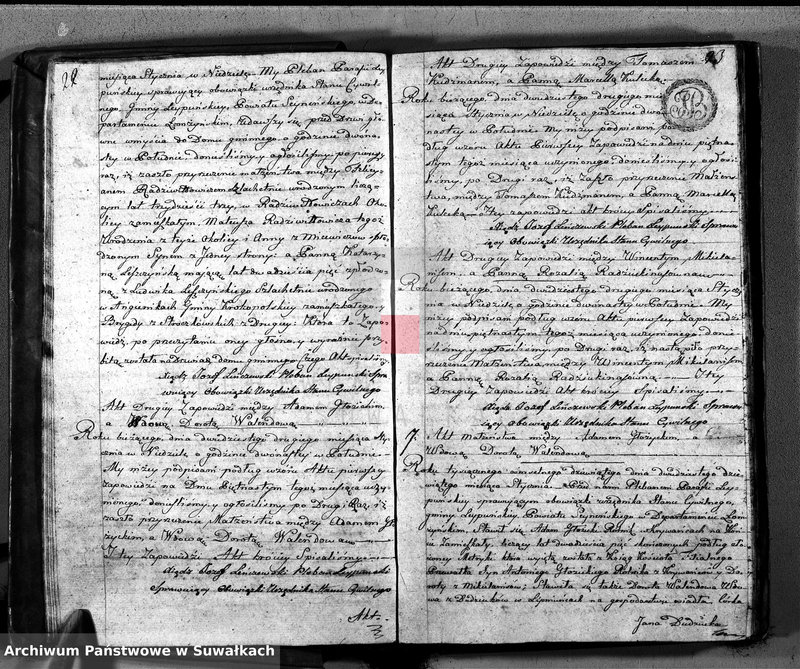 22
miesiąca Stycznia w Niedzielę My Pleban Parafii Ley
puńskiey sprawuiący obowiązki urzędnika Stanu Cywil
nego, Gminy Leypuńskiey Powiatu Seyneńskiego, w De
partamencie Łomżyńskim, udawszy się przed Drzwi głó
wne wniyścia do Domu gminnego o godzinie dwuna
stey w Południe donieśliśmy i ogłosiliśmy po pierwszy
raz, iż zaszło przyrzeczenie małżeństwa między
anem Radziwiłłowiczem Szlachetnie urodzonym liczą
cym lat trzydzieści trzy, w Radziwiłłowiczach Oko
licy zamieszkałym, Mateusza Radziwiłłowicza tegoż
Urodzenia z teyże okolicy i Anny z spło
dzonym Synem z Jedney strony: a Panną Katarzy
ną Leszczyńską maiącą lat dwadzieścia pięć spłodzo
ną z Ludwika Leszczyńskiego Szlachetnie urodzonego
w Gminy Krokopolskiey zamieszkałego, i
Brygidy z z Drugiey: Która to Zapo
wiedź, po przeczytaniu oney głośno i wyraźnie przy
bitą została na Drzwiach domu gminnego, czego Akt spisaliśmy
Xiądz Jozef Liniczewski Pleban Leypunski Spra
wuiący Obowiązki Urzędnika Stanu Cywilnego
Akt Drugiey Zapowiedzi między Adamem
a Wdową Dorotą Walendową
Roku bieżącego, dnia dwudziestego drugiego miesiąca Sty
cznia w Niedzielę o godzinie dwunastey w Południe
My niżey podpisani podług wzoru Aktu pierwszey
zapowiedzi na Dniu Piętnastym tegoż miesiąca uczy
nionego, donieśliśmy i ogłosiliśmy po Drugi Raz, iż
zaszło przyrzeczenie Małżeństwa między Adamem
a Wdową Dorotą Walendową
Jtey Zapowiedzi Akt krócey Spisaliśmy
Xiądz Jozef Liniczewski Pleban Leypunski
Sprawuiący Obowiązki Urzędnika Stanu Cywilnego
Akt
23
Akt Drugiey Zapowiedzi między Tomaszem
Kudzmanem, a Panną Maryellą Kulecką.
Roku bieżącego, dnia dwudziestego drugiego mie
siąca Stycznia w Niedzielę o godzinie dwuna
stey w Południe My niżey podpisani po
dług wzoru Aktu Pierwszey Zapowiedzi na dniu piętna
stym tegoż miesiąca uczynionego donieśliśmy i ogłosi
liśmy, po Drugi raz, iż zaszło przyrzeczenie Małżeń
stwa, między Tomaszem Kudzmanem, a Panną Maryellą
Kulecką Jtey zapowiedzi akt krócey Spisaliśmy
Xiądz Jozef Liniczewski Pleban Leypunski Sprawu
iący Obowiązki Urzędnika Stanu Cywilnego
Akt Drugiey Zapowiedzi między Wincentym Mikita
nisem, a Panną Rozalią
Roku bieżącego, dnia dwudziestego drugiego miesiąca Stycz
nia w Niedzielę o godzinie dwunastey w Południe. My
niżey podpisani podług wzoru Aktu pierwszey Zapowiedzi
na dniu piętnastym tegoż miesiąca uczynionego donie
śliśmy i ogłosiliśmy po Drugi raz, iż nastąpiło przy
rzeczenie Małżeństwa między Wincentym Mikitanisem
a Panną Rozalią Jtey
Drugiey Zapowiedzi Akt krócey Spisaliśmy
Xiądz Jozef Liniczewski Pleban Leypunski Sprawu
iący Obowiązki Urzędnika Stanu Cywilnego
7. Akt małżeństwa między Adamem a
Wdową Dorotą Walendową
Roku tysiącznego osmsetnego dziewiątego dnia dwudziestego dzie
wiątego miesiąca Stycznia. Przed nami Plebanem Parafii Ley
puńskiey sprawuiącym obowiązki urzędnika Stanu Cywilnego,
gminy Leypuńskiey Powiatu Seyneńskiego w Departamencie Łom
żyńskim, Stawił się Adam w
Zamieszkały, liczący lat dwadzieścia pięć skończonych podług zło
żoney Metryki która wyięta została z Ksiąg Kościoła
Syn Antoniego Rolnika z i Do
roty z Stawiła się także Dorota Walendowa Wdo
wa z w na gospodarstwie osiadła Córka
Jana
Archiwum Państwowe w Suwałkach